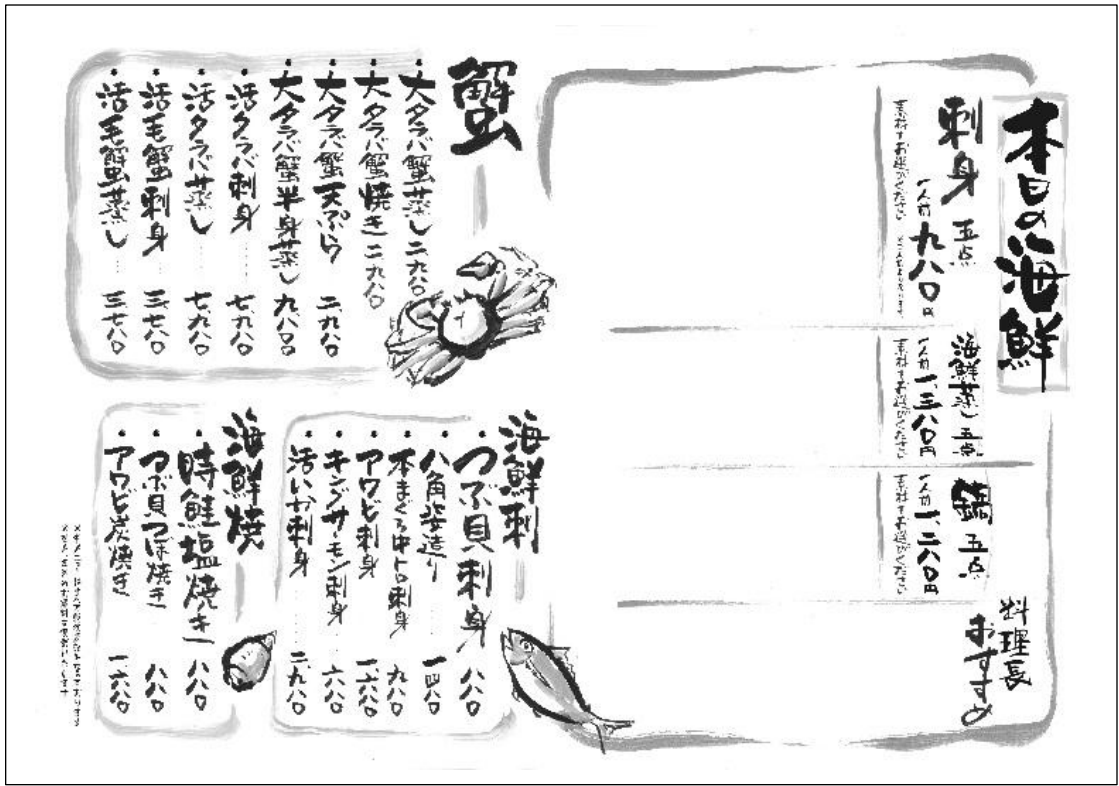 本日の海鮮
刺身 五点
一人前 九八〇円
素材をお選びください
海鮮蒸し 五点
一人前 一、三八〇円
素材をお選びください
鍋 五点
一人前 一、二八〇円
素材をお選びください
料理長
おすすめ
蟹
・大タラバ蟹蒸し 二、九八〇
・大タラバ蟹焼き 二、九八〇
・大タラバ蟹天ぷら 二、九八〇
・大タラバ蟹半身蒸し 九、八〇〇
・活タラバ刺身 …… 七、九八〇
・活タラバ蒸し …… 七、九八〇
・活毛蟹刺身 …… 三、七八〇
・活毛蟹蒸し …… 三、七八〇
海鮮刺
・つぶ貝刺身 …… 八八〇
・八角姿造り …… 一、四八〇
・本まぐろ中トロ刺身 九八〇
・アワビ刺身 …… 一、六八〇
・キングサーモン刺身 … 六八〇
・活いか刺身 …… 二、九八〇
海鮮焼
・時鮭塩焼き 八八〇
・つぶ貝つぼ焼き 八八〇
・アワビ炭焼き …… 一、六八〇